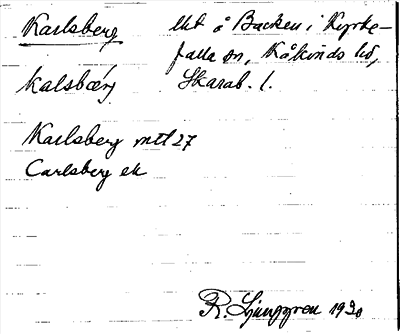 Karlsberg
Utt å Backen i Kyrke-
falla sn, Kåkinds hd,
kalsbærj
Skarab. l.
Karlsberg mtl 27
Carlsberg ek
R. Ljunggren 1930